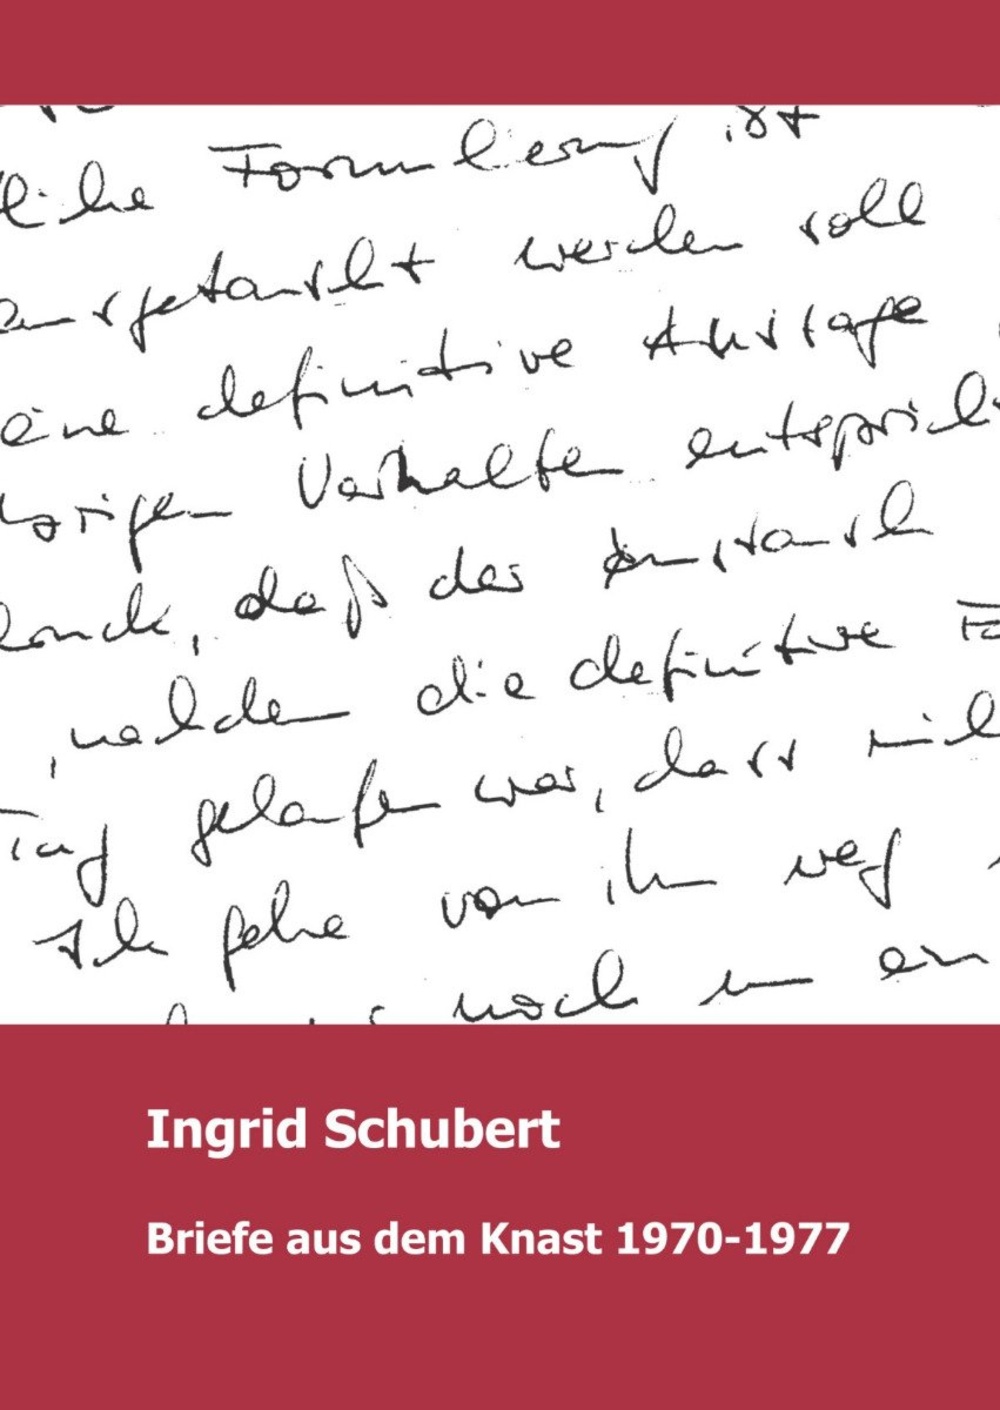 liche Formulierung ist
ausgetauscht werden soll
eine definitive Aussage
Verhalten entspricht
, daß der Austausch
, welchem die definitive
gelaufen war, dass
Ich gehe von ihm weg
noch in ein
Ingrid Schubert
Briefe aus dem Knast 1970-1977